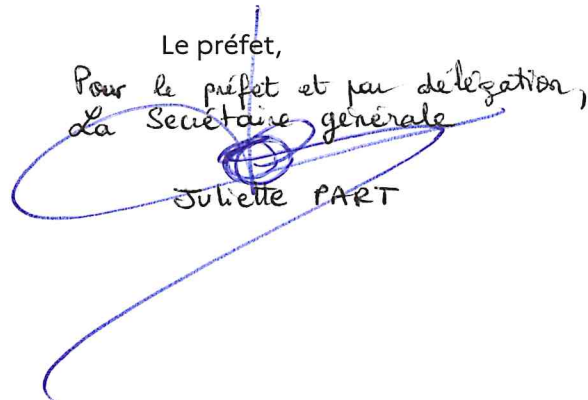 Le préfet,
Pour le préfet et par délégation,
La Secrétaire générale
Juliette PART